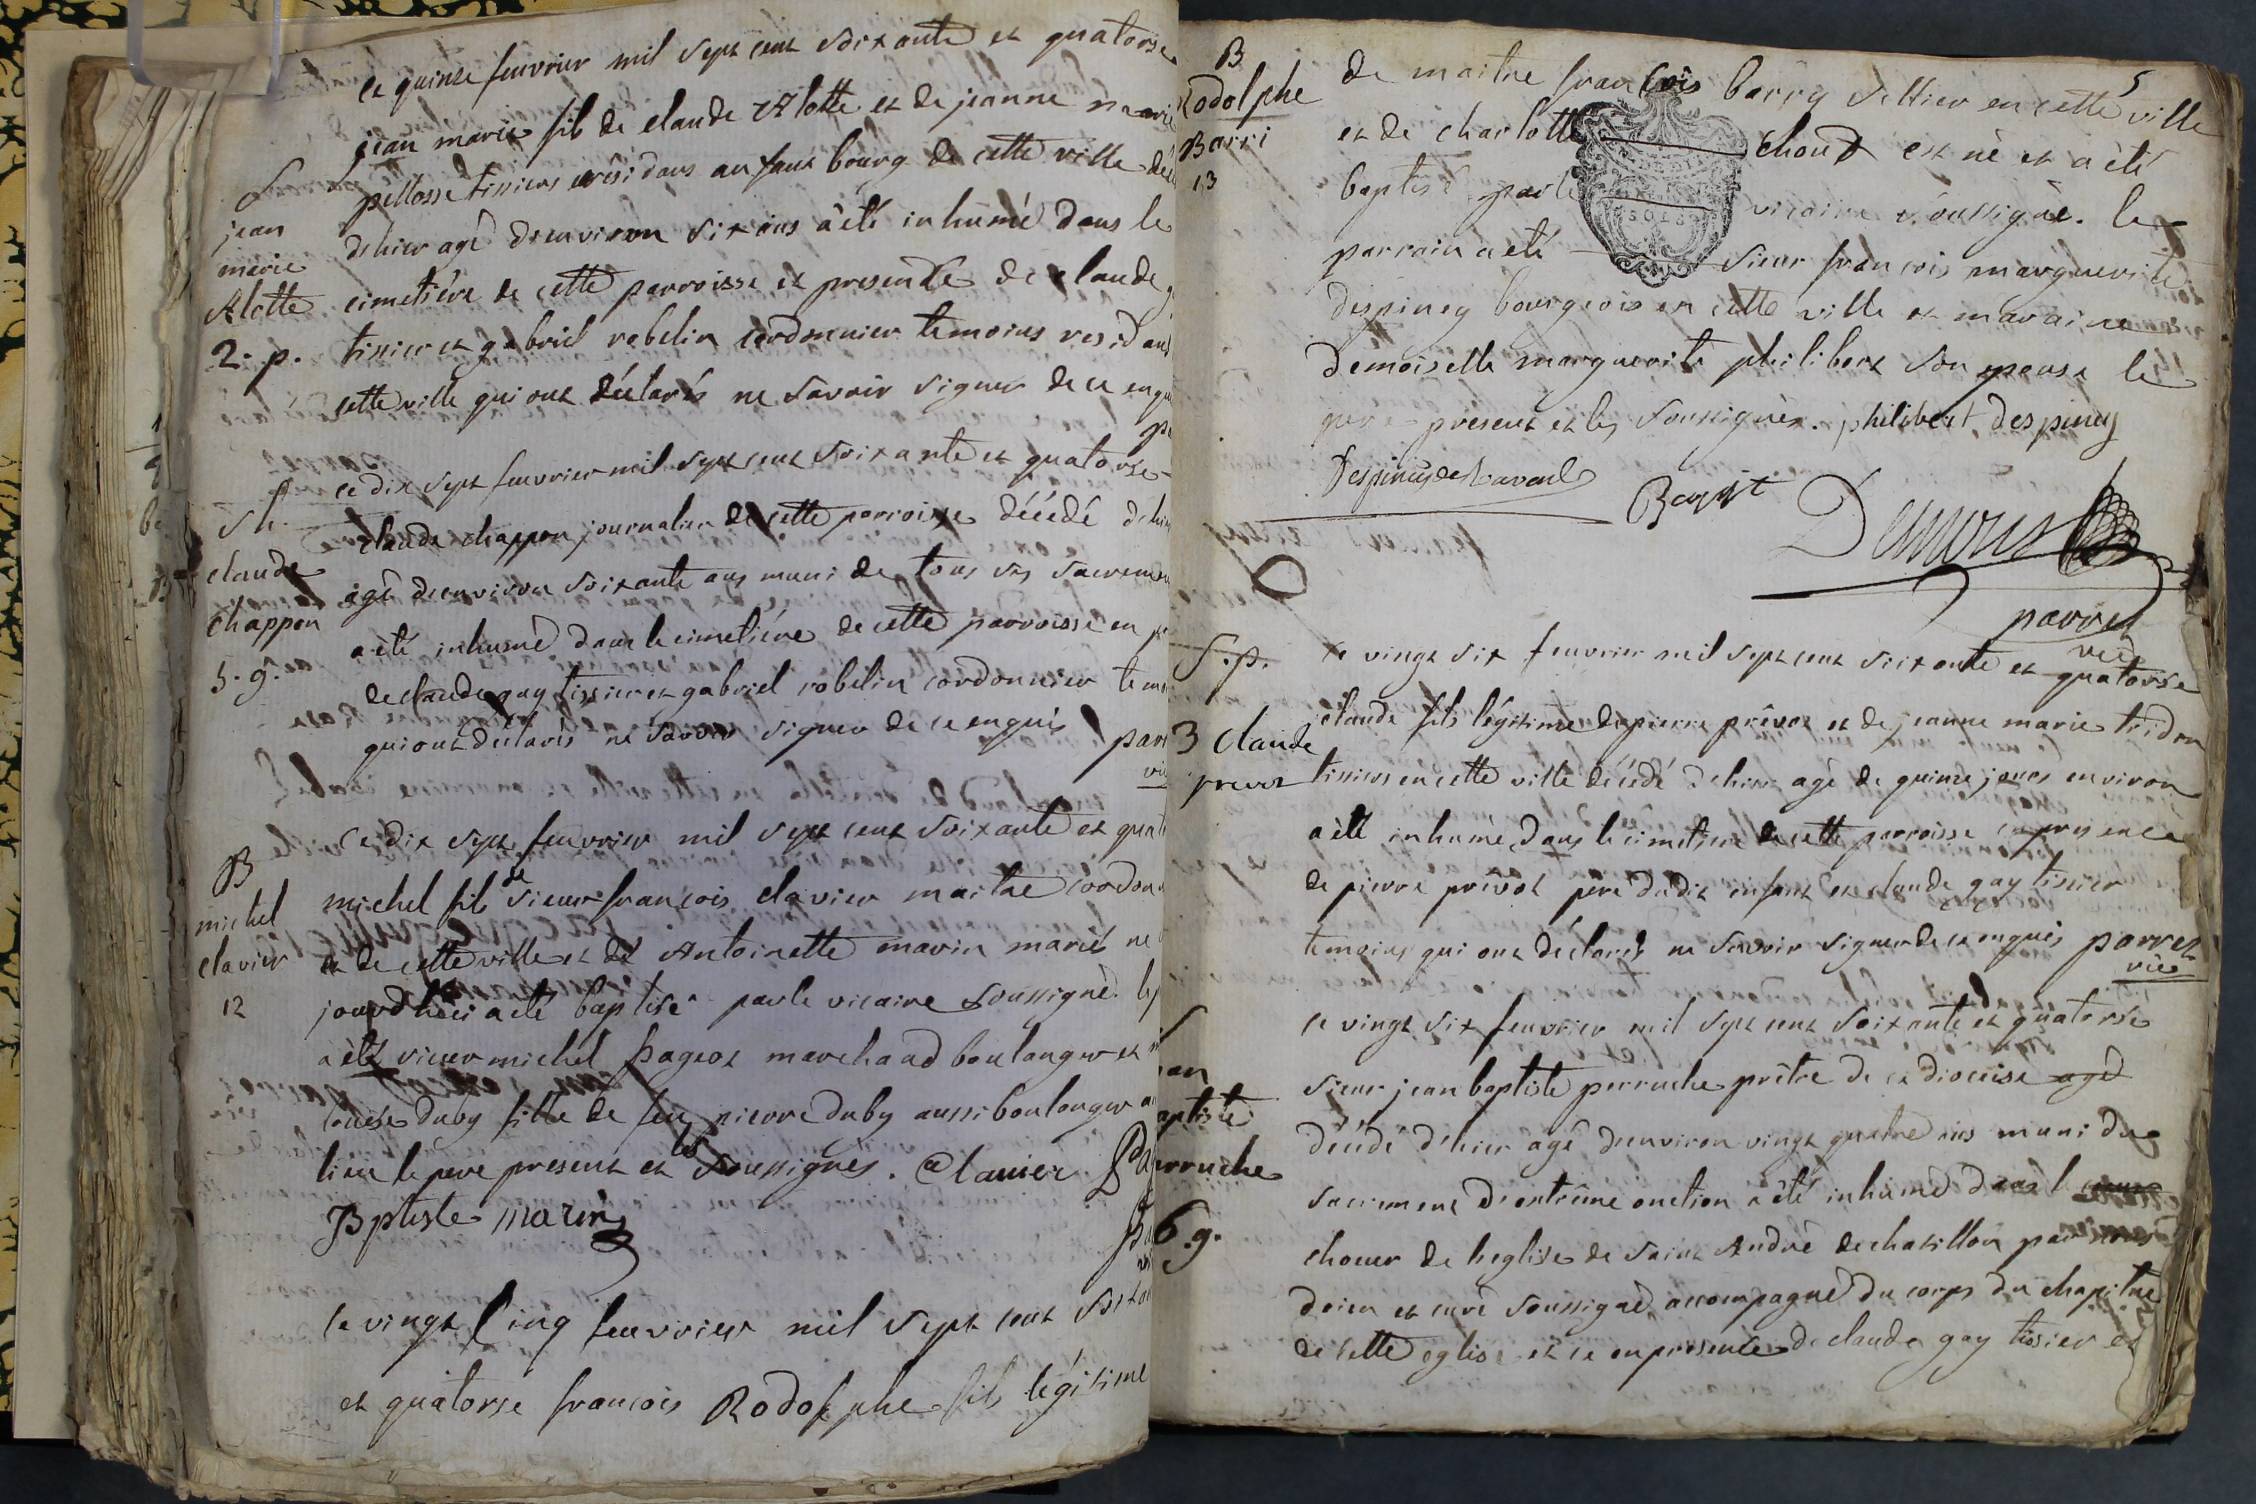 ce quinze feuvrier mil sept cent soixante et quatorse
jean marie fils de claude Alotte et de jeanne marie
pellosse tissiers résidans au faux bourg de cette ville
d'hier agé d'environ six ans à été inhumé dans le
cimetière de cette parroisse et presence de claude
tissier et gabriel robelin cordonnier temoins residans
cette ville qui ont déclarés ne savoir signer de ce enquis
S
jean
marie
Alotte
2. p.
ce dix sept feuvrier mil sept cent soixante et quatorse
claude chappon journalier de cette parroisse décédé d'hier
agé d'environ soixante ans muni de tous ses sacremen
a été inhumé dans le cimetière de cette parroisse en
de claude gay tissier et gabriel robelin cordonnier tem
qui ont déclarés ne savoir signer de ce enquis parr
Sh.
claude
chappon
5. g.
ce dix sept feuvrier mil sept cent soixante et quat
michel fils de sieur françois clavier maitre cordon
de cette ville et de Antoinette marin mariés né
jourd'hui a été baptisé par le vicaire soussigné. le p
a été sieur michel pageot marchand boulanger et
louise duby fille de feu pierre duby aussi boulanger
lieu le pere present et les soussignés. Clavier
Bptiste marin
B
michel
clavier
12
ce vingt cinq feuvrier mil sept cent soixan
et quatorse francois Rodolphe fils légitime
5
de maitre francois barry sellier en cette ville
et de charlotte choud est né et a été
baptisé par le vicaire soussigné. le
parrain a été sieur françois marguerite
despiney bourgeois en cette ville et maraine
demoiselle marguerite philibert son epouse le
pere present et les soussignés. philibert despiney
Despiney de
Barri
B
Rodolphe
Barri
13
parret
vic
ce vingt six feuvrier mil sept cent soixante et quatorse
claude fils légitime de pierre prévot et de jeanne marie tridon
tissiers en cette ville décédé d'hier agé de quinze jours environ
a été inhumé dans le cimetiere de cette parroisse en presence
de pierre prévot pere dudit enfant et claude gay tissier
temoins qui ont déclarés ne savoir signer de ce enquis parret
vic
S. p.
3 claude
prevot
ce vingt six feuvrier mil sept cent soixante et quatorse
sieur jean baptiste perruche prêtre de ce diocèse agé
décédé d'hier agé d'environ vingt quatre ans muni du
sacrement d'extrême onction a été inhumé dans l
choeur de l'eglise de saint André de chatillon par nous
doien et curé soussigné accompagné du corps du chapitre
de cette eglise et ce en presence de claude gay tissier et
ean
aptiste
erruche
6. g.